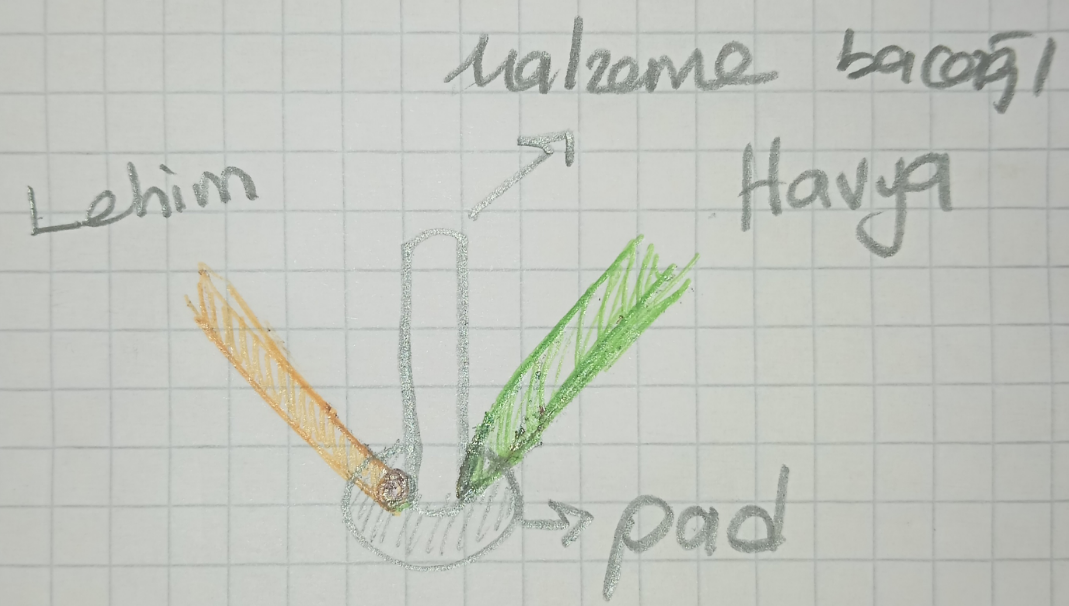 Malzeme bacağı
Lehim
Havya
pad